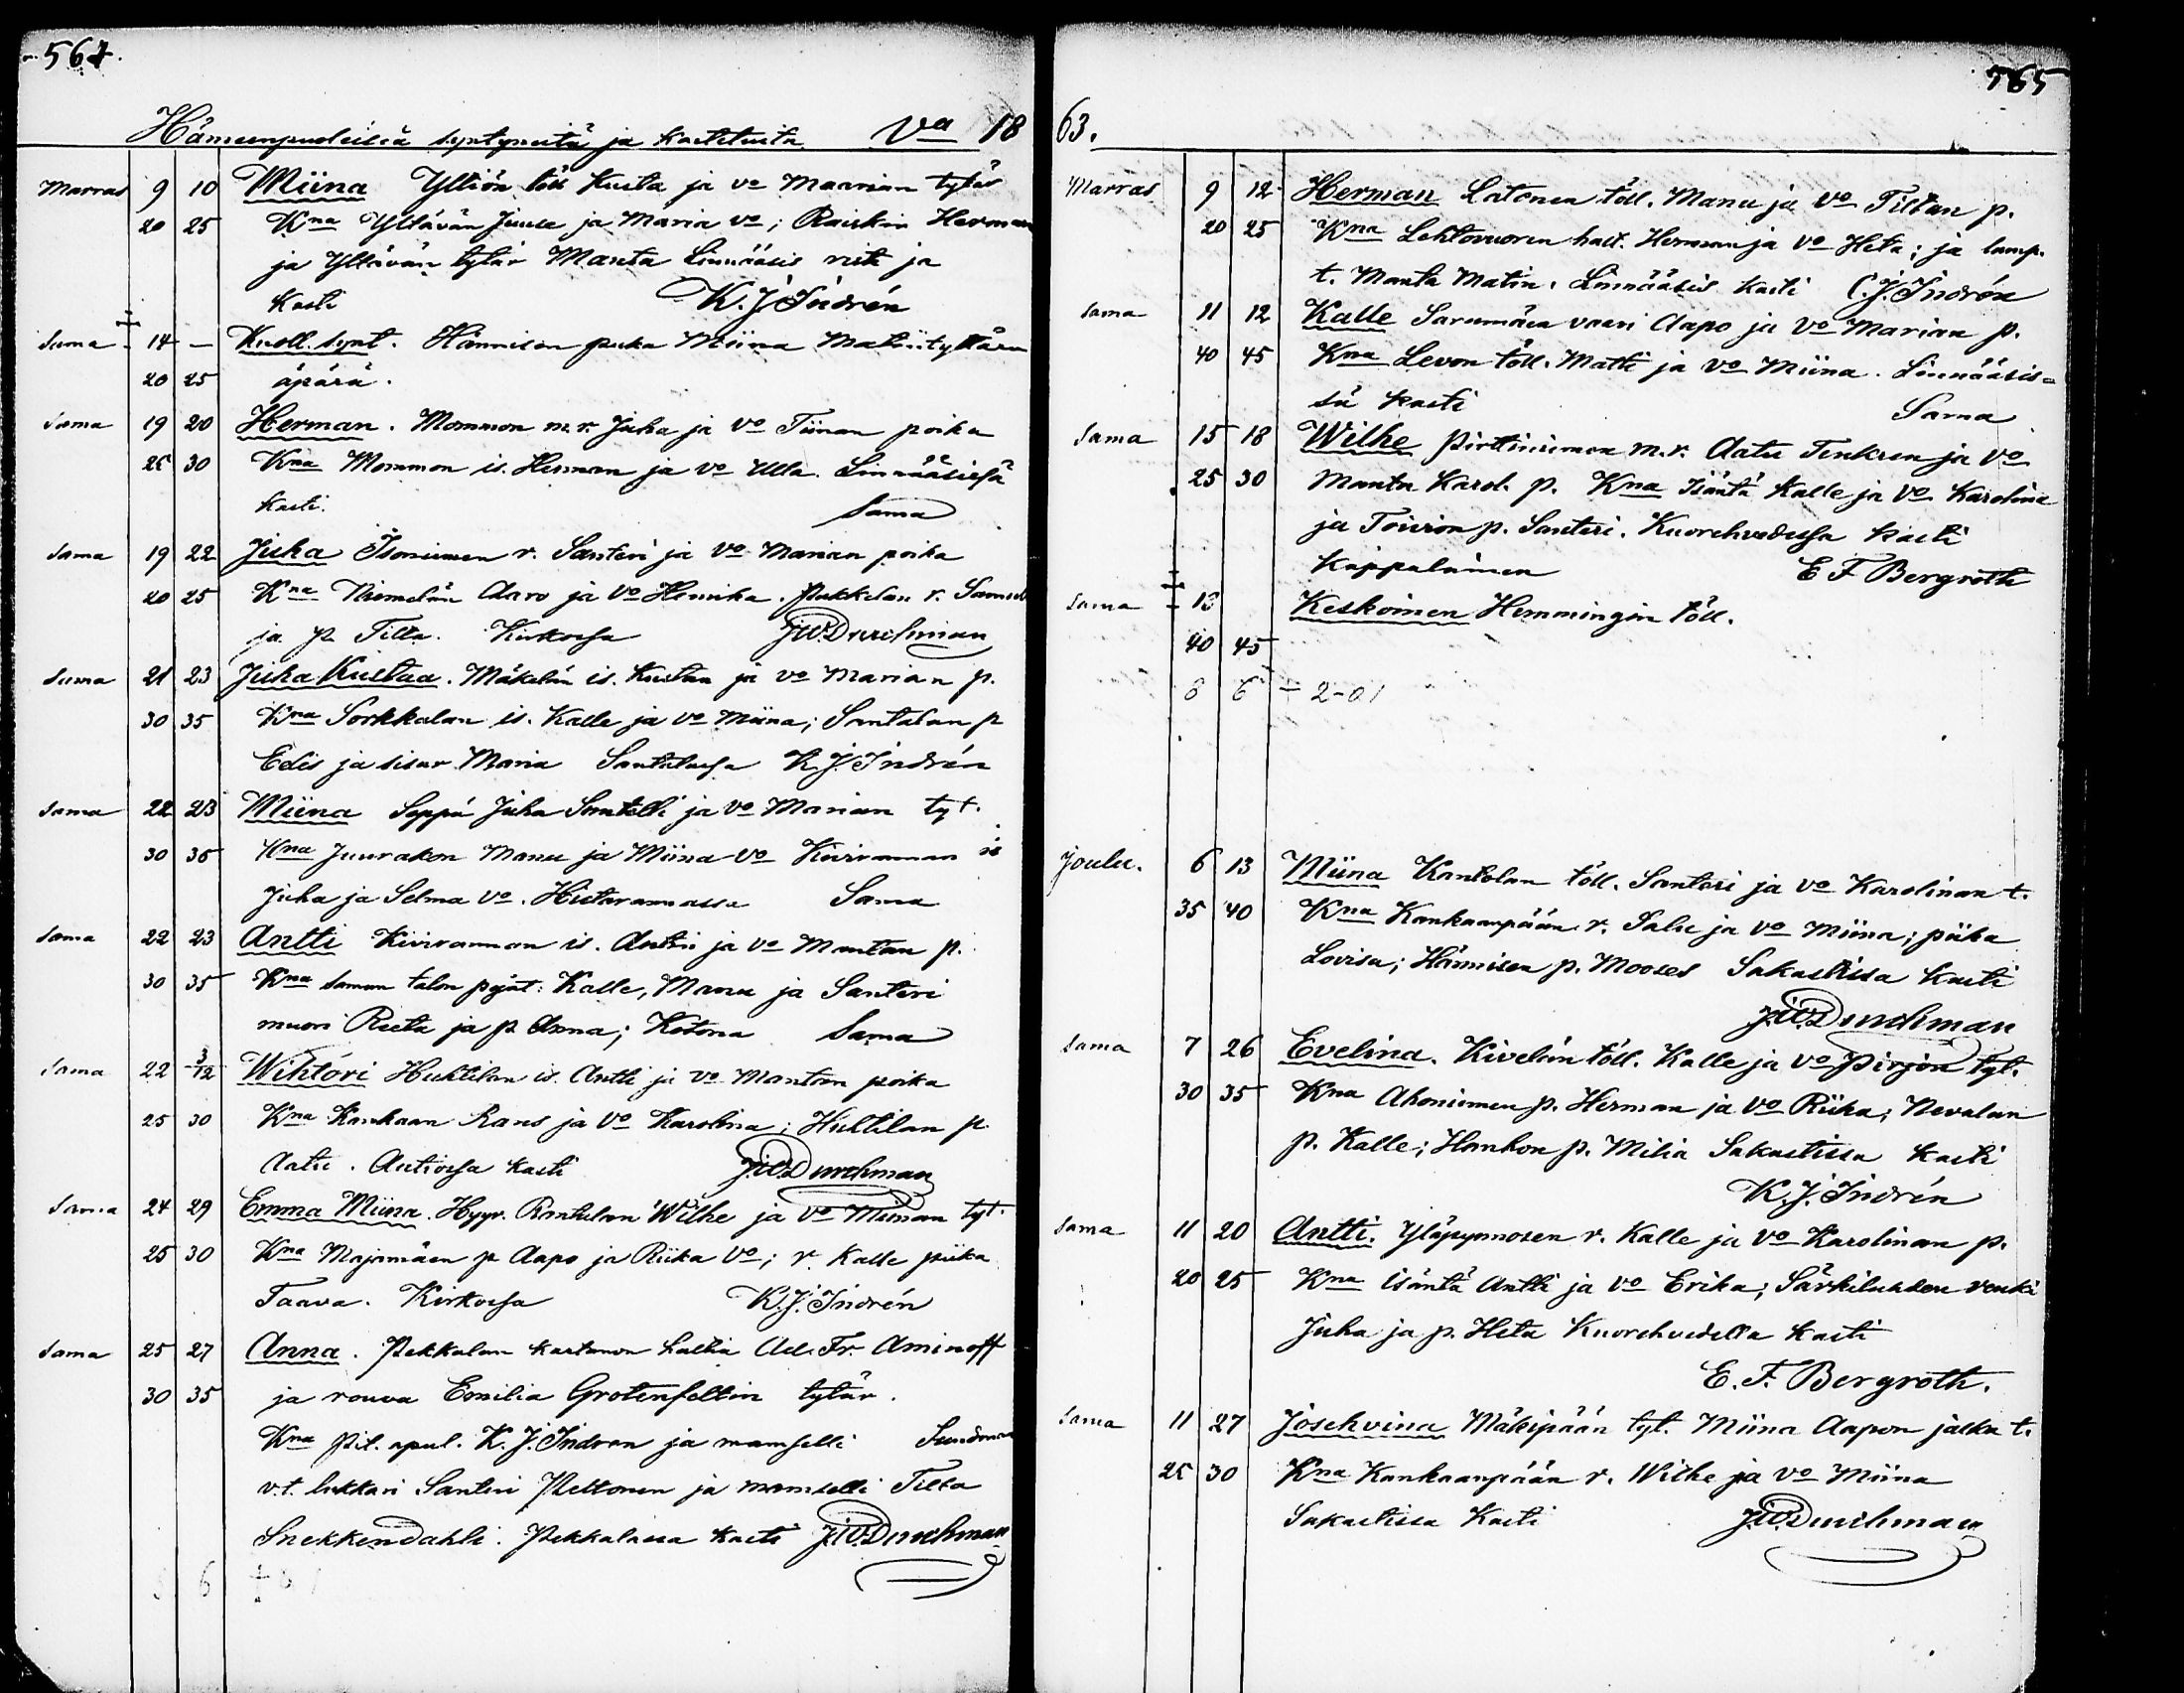 564.
Hämeenpuoleisia syntyneitä ja kastetuita Va 18
Marras 9 10 Miina Yltiön töll Kusta ja vo Maarian tytär
20 25 Kna Yltävän Juuse ja Maria vo; Raiskin Herman
ja Yltävän tytär Manta Linnääsis risti ja
kasti K. J. Indrén
Sama 14 — Kuoll. synt. Hännisen piika Miina Matintyttären
20 25 äpärä.
Sama 19 20 Herman. Mommon m.r. Juha ja vo Tiinan poika
25 30 Kna Mommon is. Herman ja vo Ulla. Linnääsissä
kasti. Sama
Sama 19 22 Juha Isoniemen r. Santeri ja vo Marian poika
20 25 Kna Niemelän Aaro ja vo Henrika. Pukkelan r. Samuel
ja p. Tilta. Kirkossa J.W. Durchman
Sama 21 23 Juha Kustaa. Mäkelän is. Kustaa ja vo Marian p.
30 35 Kna Sorkkalan is. Kalle ja vo Miina; Santalan p
Edis ja sisar Maria Santalassa K. J. Indrén
Sama 22 23 Miina Seppä Juha Santelli ja vo Marian tyt.
30 35 Kna Juurakon Manu ja Miina vo Kivirannan is
Juha ja Selma vo. Hietarannassa Sama
Sama 22 23 Antti Kivirannan is. Antin ja vo Mantan p.
30 35 Kna saman talon pojat: Kalle, Manu ja Santeri
muori Reeta ja p Anna; Kotona Sama
Sama 22 3/12 Wihtöri Huhtilan is. Antti ja vo Mantan poika
25 30 Kna Kankaan Rans ja vo Karolina; Huhtilan p.
Aatu. Autiossa kasti J.W. Durchman
Sama 24 29 Emma Miina. Hyyr. Rantalan Wilhe ja vo Miinan tyt.
25 30 Kna Majamäen p Aapo ja Riika vo; r. Kalle piika
Taava. Kirkossa K. J. Indrén
Sama 25 27 Anna. Pekkalan kartanon haltia Ad. Fr. Aminoff
30 35 ja rouva Emilia Grotenfeltin tytär.
Kna Pit. apul. K. J. Indren ja mamselli Sundman
v.t. lukkari Santeri Peltonen ja mamselli Tilta
Snekkendahli. Pekkalassa kasti J.W. Durchman
6
565
63.
Marras 9 12 Herman Latonen töll. Manu ja vo Tiltan p.
20 25 Kna Lehtovuoren hast. Herman ja vo Heta; ja lamp.
t. Manta Matin. Linnääsis kasti C. J. Indrén
Sama 11 12 Kalle Sarumäen vaari Aapo ja vo Marian p.
40 45 Kna Levon töll. Matti ja vo Miina. Linnääsis=
sä kasti Sama
Sama 15 18 Wilhe Pirttiniemen m.r. Aatu Tenkren ja vo
25 30 Manta Karol. p. Kna isäntä Kalle ja vo Karolina
ja Toivion p. Santeri. Kuorehvedessa kasti
Kappalainen E F Bergroth
Sama 18 Keskoinen Hemmingin töll.
40 45
8 6 2-01
Joulu. 6 13 Miina Kantolan töll. Santeri ja vo Karolinan t.
35 40 Kna Kankaanpään r. Salu ja vo Miina; piika
Lovisa; Hännisen p. Mooses Sakastissa kasti
J.W. Durchman
Sama 7 26 Evelina. Kivelän töll. Kalle ja vo Pirjon tyt.
30 35 Kna Ahoniemen p. Herman ja vo Riika; Nevalan
p. Kalle; Hanhon p. Milia Sakastissa kasti
K. J. Indrén
Sama 11 20 Antti. Yläpynnosen r. Kalle ja vo Karolinan p.
20 25 Kna isäntä Antti ja vo Erika; Särkiluhden renki
Juha ja p. Heta Kuorehvedella kasti
E. F. Bergroth.
Sama 11 27 Josehvina Mäkipään tyt. Miina Aapon jalka t.
25 30 Kna Kankaanpään r. Wilhe ja vo Miina
Sakastissa Kasti J.W. Durchman